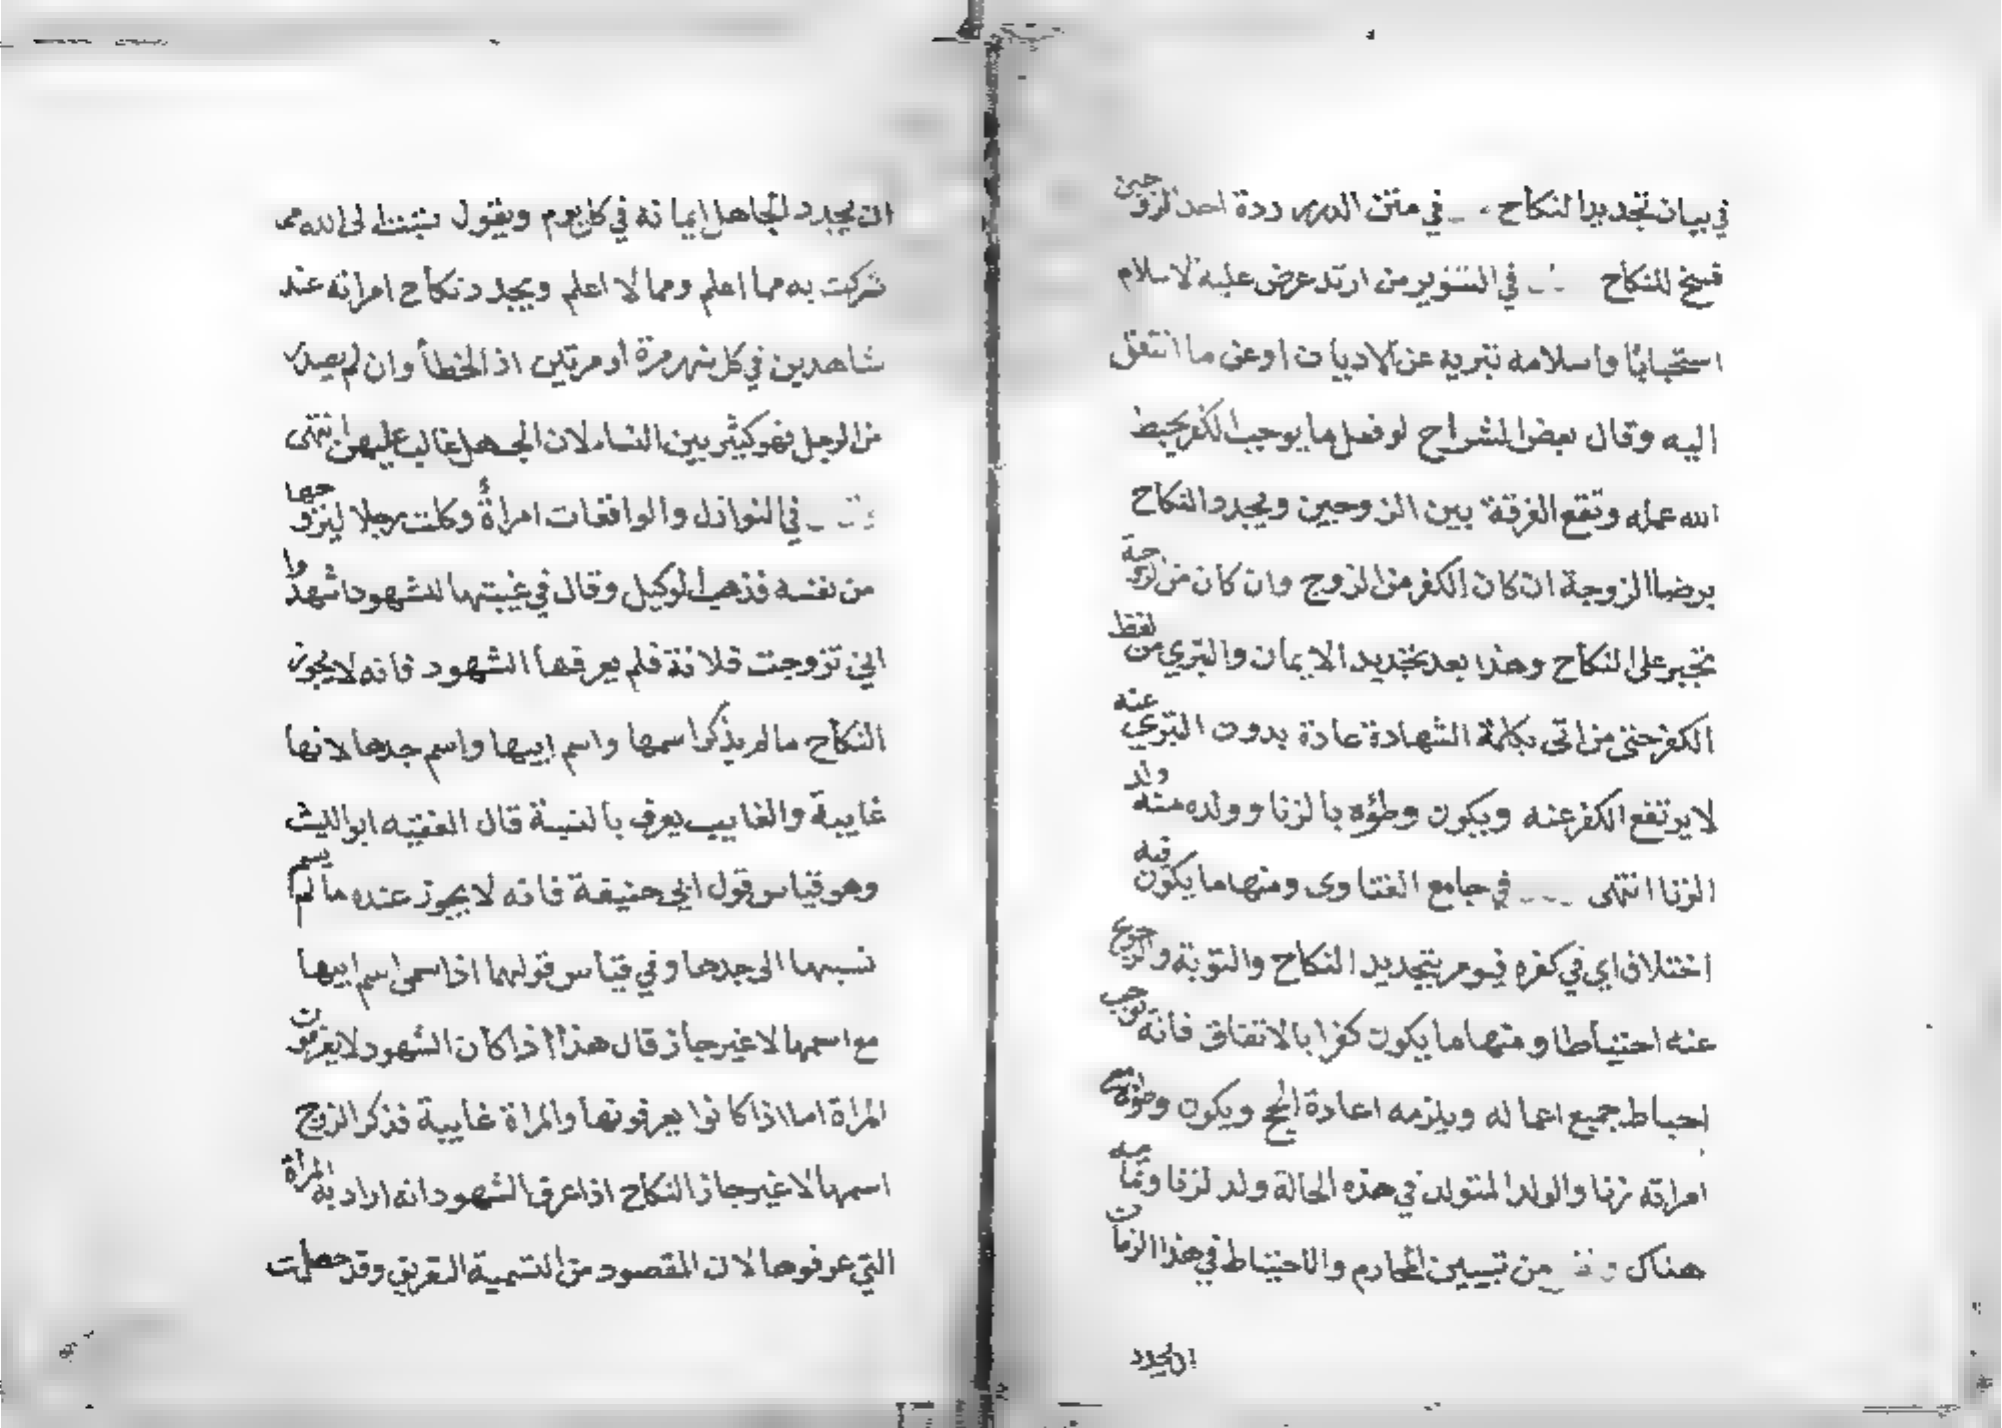 في بيان تجديد النكاح في متن الدرر ردة احد الزوجين
فسخ للنكاح في التنوير من ارتد عرض عليه الاسلام
استحبابا واسلامه تبريه عن الاديان او عن ما انتقل
اليه وقال بعض الشراح لو فعل ما يوجب الكفر يحبط
الله عمله وتقع الفرقة بين الزوجين ويجدد النكاح
برضا الزوجة ان كان الكفر من الزوج وان كان من الزوجة
تجبر على النكاح وهذا بعد تجديد الايمان والتبري من لفظ
الكفر حتى من اتى بكلمة الشهادة عادة بدون التبري عنه
لا يرتفع الكفر عنه ويكون وطؤه بالزنا وولده منه ولد
الزنا انتهى في جامع الفتاوى ومنها ما يكون فيه
اختلاف اي في كفره فيومر بتجديد النكاح والتوبة والرجوع
عنه احتياطا ومنها ما يكون كفرا بالاتفاق فانه يوجب
احباط جميع اعماله ويلزمه اعادة الحج ويكون وطؤه مع
امراته زنا والولد المتولد في هذه الحالة ولد لزنا
هناك من تبيين المحارم والاحتياط في هذا الزمان
ان يجدد
ان يجدد الجاهل ايمانه في كل يوم ويقول تبت الى الله مما
شركت به مما اعلم ومما لا اعلم ويجدد نكاح امراته عند
شاهدين في كل شهر مرة او مرتين اذ الخطأ وان لم يصدر
من الرجل فهو كثير بين النسا لان الجهل غالب عليهن انتهى
في النوازل والواقعات امرأة وكلت رجلا ليزوجها
من نفسه فذهب الوكيل وقال في غيبتها للشهود اشهدوا
اني تزوجت فلانة فلم يعرفها الشهود فانه لا يجوز
النكاح ما لم يذكر اسمها واسم ابيها واسم جدها لانها
غايبة والغايب يعرف بالنسبة قال الفقيه ابو الليث
وهو قياس قول ابي حنيفة فانه لا يجوز عنده ما لم يسم
نسبها الى جدها وفي قياس قولهما اذا سمى اسم ابيها
مع اسمها لا غير جاز قال هذا اذا كان الشهود لا يعرفون
المراة اما اذا كانوا يعرفونها والمراة غايبة فذكر الزوج
اسمها لا غير جاز النكاح اذا عرف الشهود انه اراد به المرأة
التي عرفوها لان المقصود من التسمية التعريف وقد حصلت